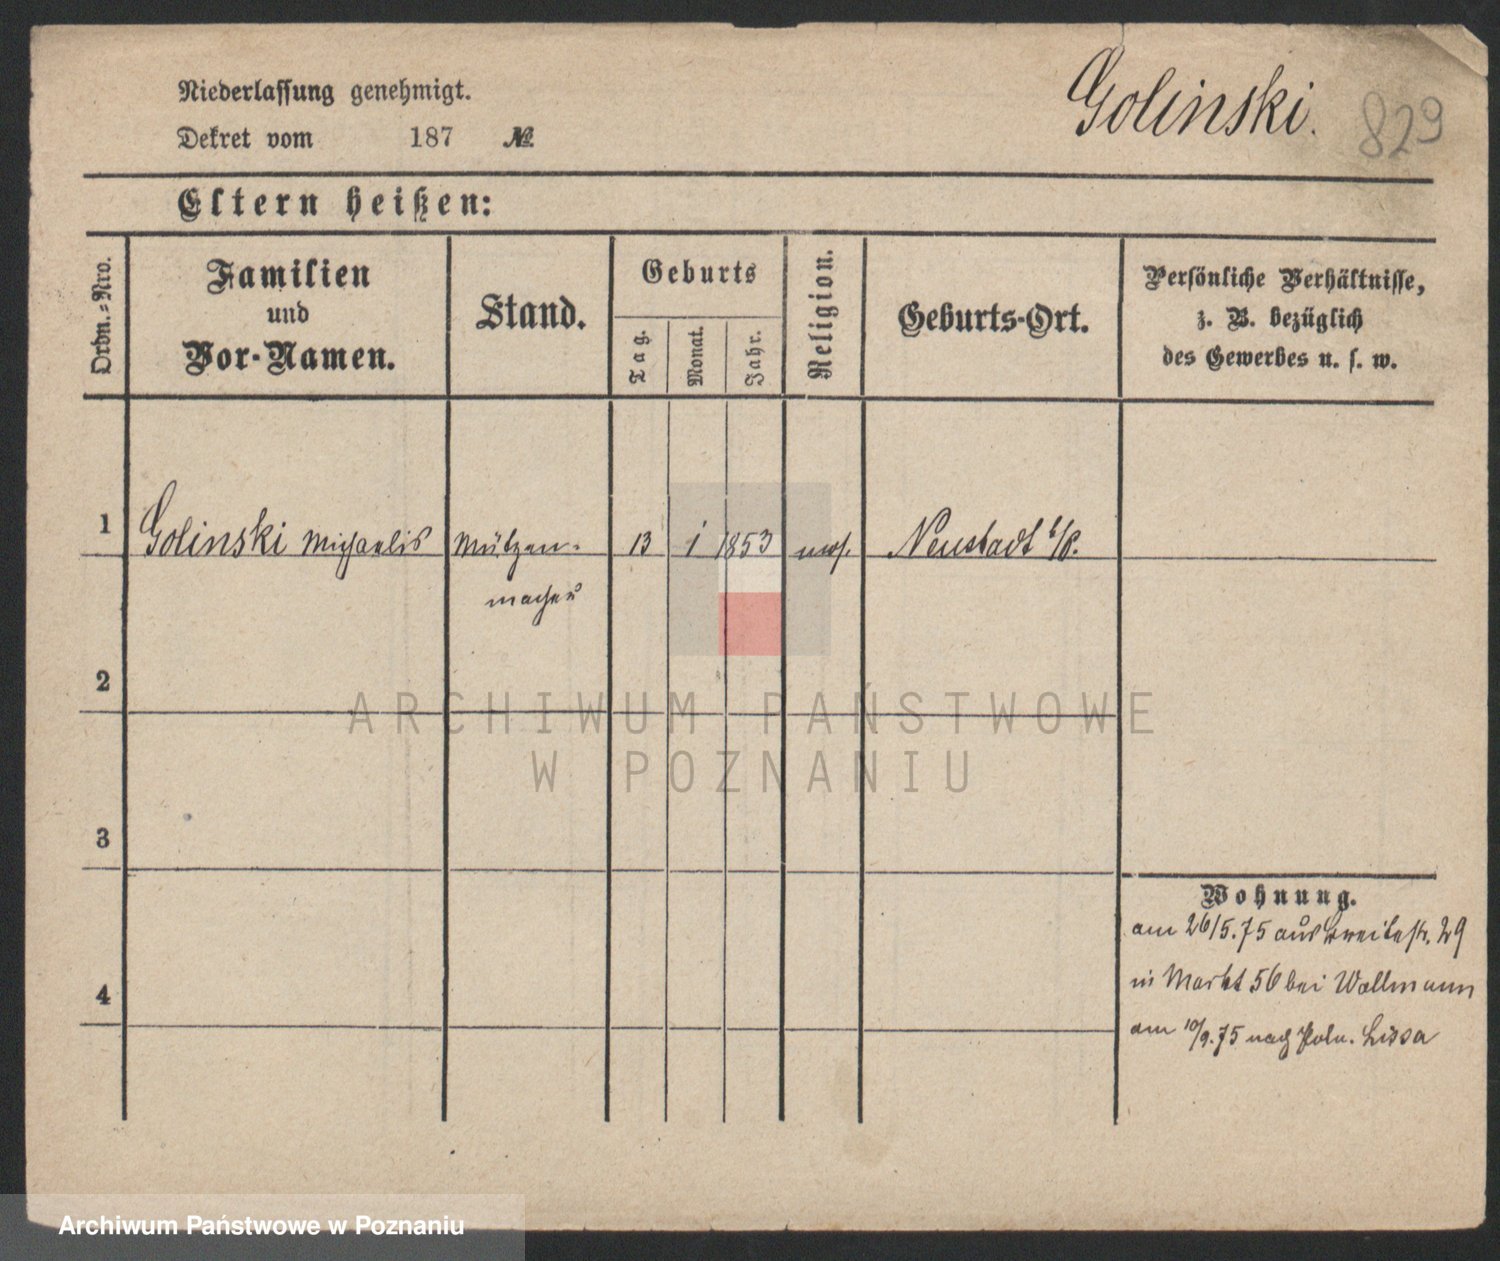 Golinski. 829
Niederlassung genehmigt.
Dekret vom 187 №
Eltern heißen:
Ordn.-Nro.
Familien
und
Vor-Namen.
Stand.
Geburts
Tag.
Monat.
Jahr.
Religion.
Geburts-Ort.
Persönliche Verhältnisse,
z. B. bezüglich
des Gewerbes u. s. w.
1 Golinski Michaelis Mützen- 13 1 1853 mos. Neustadt b/P.
macher
2
ARCHIWUM PAŃSTWOWE
W POZNANIU
3
Wohnung.
am 26/5.75 aus Breitestr. 29
in Markt 56 bei Wollmann
4
am 10/9.75 nach Poln. Lissa
Archiwum Państwowe w Poznaniu